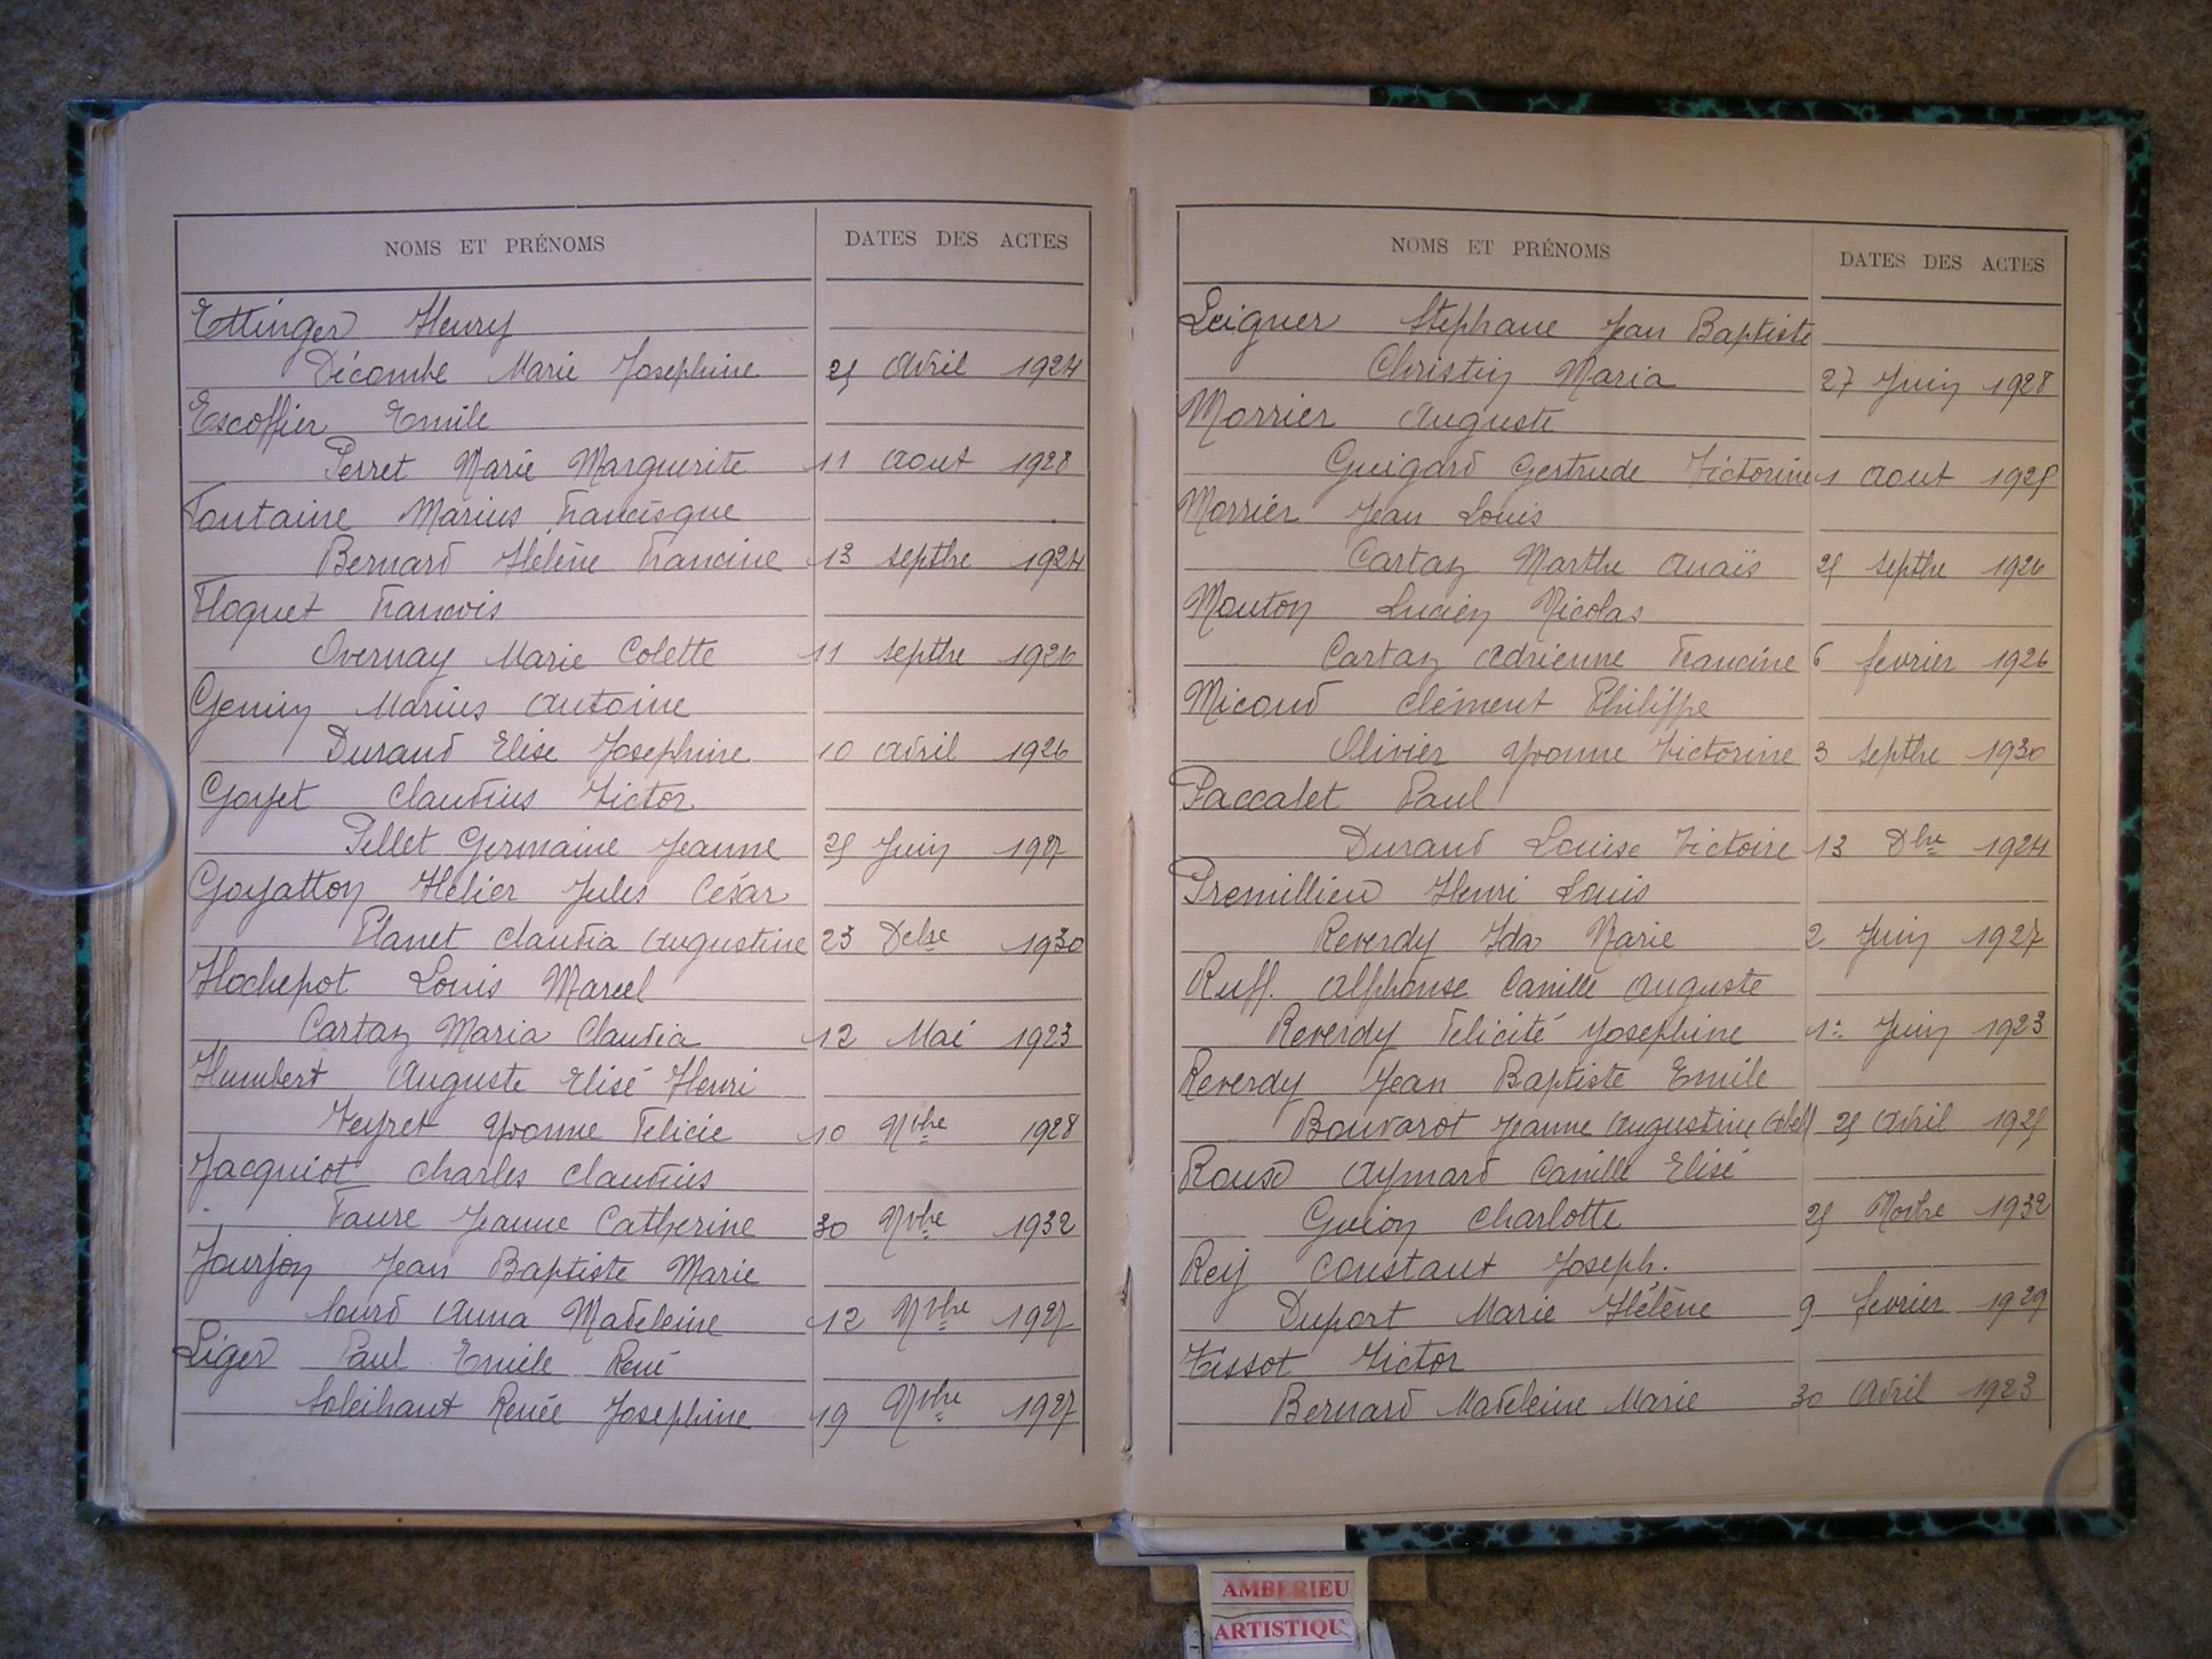 NOMS ET PRÉNOMS DATES DES ACTES
Ettinger Henry
Décombe Marie Josephine 25 Avril 1924
Escoffier Emile
Perret Marie Marguerite 11 Aout 1928
Fontaine Marius Francisque
Bernard Hélène Francine 13 septbre 1924
Floquet Francois
Overnay Marie Colette 11 septbre 1926
Genin Marius Antoine
Durand Elise Josephine 10 Avril 1926
Goyet Claudius Victor
Pellet Germaine Jeanne 25 Juin 1927
Goyatton Hélier Jules César
Planet Claudia Augustine 23 Dcbre 1930
Hochepot Louis Marcel
Cartaz Maria Claudia 12 Mai 1923
Humbert Auguste Elisé Henri
Veyret Yvonne Felicie 10 Nvbre 1928
Jacquiot Charles Claudius
Faure Jeanne Catherine 30 Nvbre 1932
Jourjon Jean Baptiste Marie
Sourd Anna Madeleine 12 Nvbre 1927
Liger Paul Emile René
Soleihant Renée Josephine 19 Nvbre 1927
NOMS ET PRÉNOMS DATES DES ACTES
Leigner Stephane Jean Baptiste
Christin Maria 27 Juin 1928
Morrier Auguste
Guigard Gertrude Victorine 1 Aout 1925
Morrier Jean Louis
Cartaz Marthe Anaïs 25 septbre 1926
Mouton Lucien Nicolas
Cartaz Adrienne Francine 6 fevrier 1926
Micoud Clément Philippe
Olivier Yvonne Victorine 3 septbre 1930
Paccalet Paul
Durand Louise Victoire 13 Dbre 1924
Premillieu Henri Louis
Reverdy Ida Marie 2 Juin 1927
Ruff. Alphonse Camille Auguste
Reverdy Felicité Josephine 1er Juin 1923
Reverdy Jean Baptiste Emile
Bouvarot Jeanne Augustine 25 Avril 1925
Roux Aymard Camille Elisé
Guion Charlotte 25 Novbre 1932
Rey Constant Joseph.
Duport Marie Hélène 9 fevrier 1929
Tissot Victor
Bernard Madeleine Marie 30 Avril 1923
AMBERIEU
ARTISTIQU